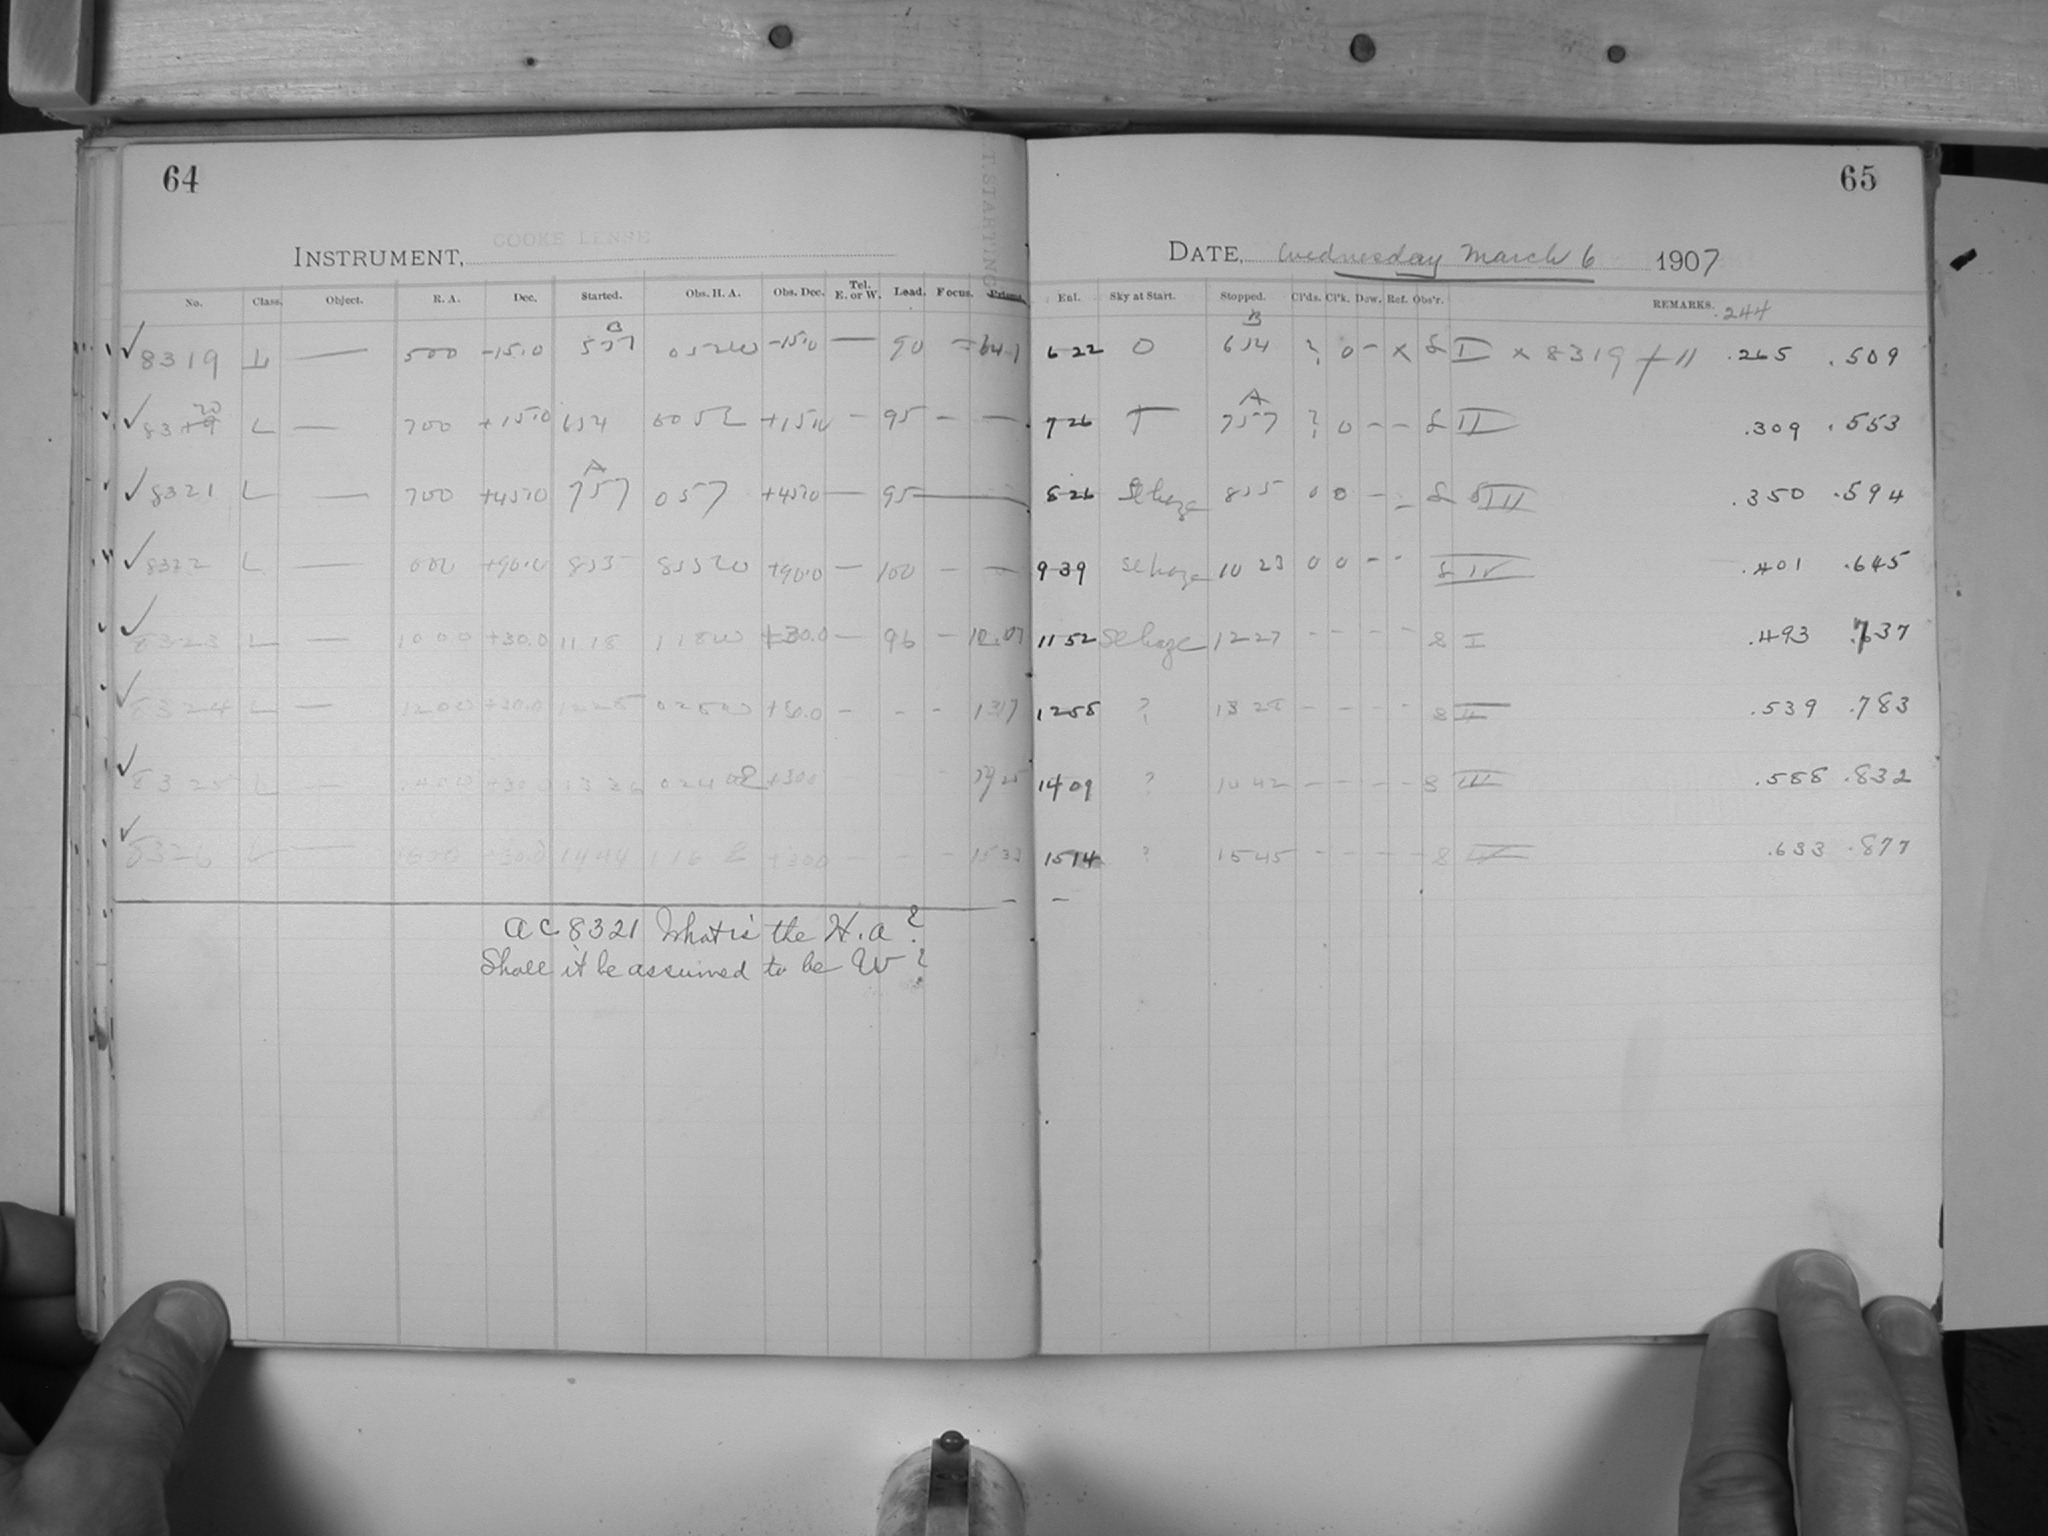 64
65
T.STARTING
COOKE LENSE
INSTRUMENT,
DATE, Wednesday March 6 1907
No. Class. Object. R. A. Dec. Started. Obs. H. A. Obs. Dec. Tel. E. or W. Load. Focus. Prisms. Enl. Sky at Start. Stopped. Cl'ds. Cl'k. Dew. Ref. Obs'r. REMARKS. .244
8319 L — 500 -15.0 557 052W -15.0 — 90 622 0 B 654 ? 0 - x I x 8319 + 11 .265 .509
8320 L — 700 +15.0 654 +15.0 — 95 - — 726 A 757 ? 0 - - II .309 .553
8321 L — 700 +45.0 A 757 057 +45.0 — 95 — 826 Sl haze 855 0 0 - - III .350 .594
8322 L — +90.0 855 855W +90.0 — 100 - — 939 Sl haze 10 23 0 0 - - IV .401 .645
8323 L — 1000 +30.0 1118 118W +30.0 — 96 - 1152 Sl haze 1227 - - - - I .493 .737
8324 L — 1200 +30.0 1228 028W +30.0 - - - 1317 1258 ? 1328 - - - - II .539 .783
8325 L — +30.0 +300 1409 ? 1442 - - - - III .588 .832
8326 L — +30.0 1444 116 E +300 - - - 1514 ? 1545 - - - - IV .633 .877
AC 8321 What is the H.A?
Shall it be assumed to be W?